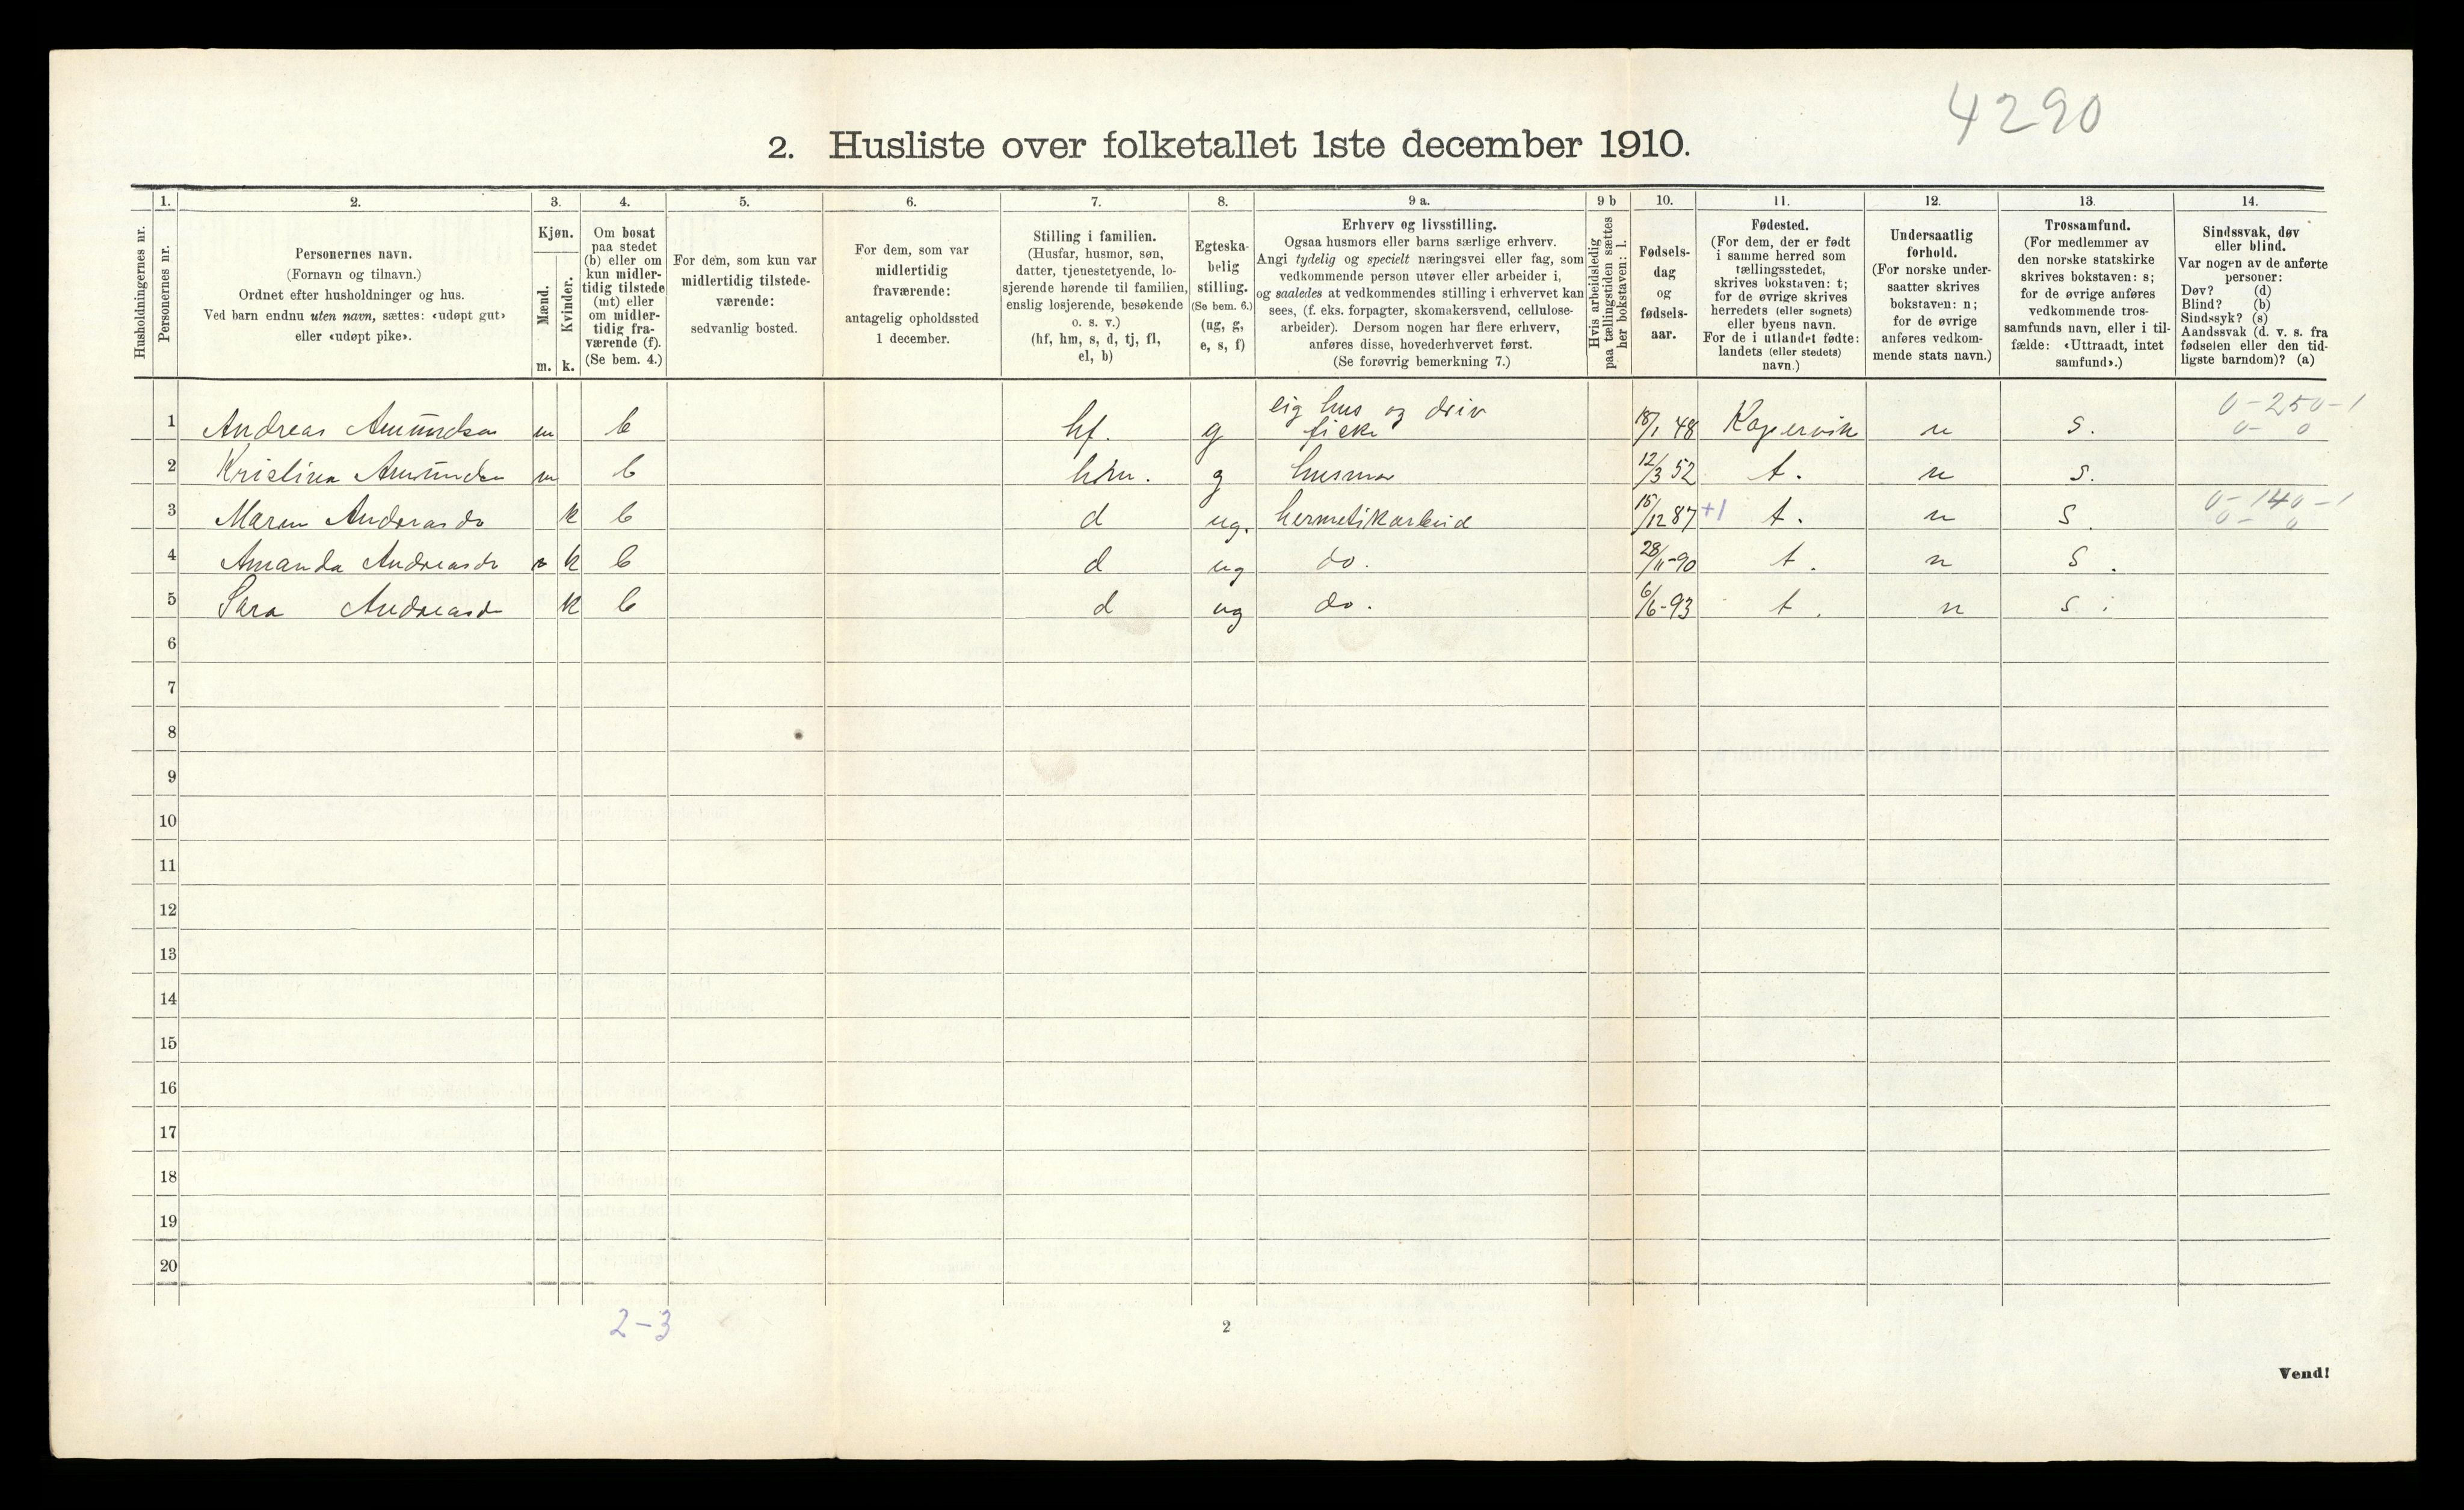 4290
2. Husliste over folketallet 1ste december 1910.
Husholdningernes nr.
1. Personernes nr.
2. Personernes navn.
(Fornavn og tilnavn.)
Ordnet efter husholdninger og hus.
Ved barn endnu uten navn, sættes: «udøpt gut»
eller «udøpt pike».
3. Kjøn.
Mænd. m.
Kvinder. k.
4. Om bosat
paa stedet
(b) eller om
kun midler-
tidig tilstede
(mt) eller
om midler-
tidig fra-
værende (f).
(Se bem. 4.)
5. For dem, som kun var
midlertidig tilstede-
værende:
sedvanlig bosted.
6. For dem, som var
midlertidig
fraværende:
antagelig opholdssted
1 december.
7. Stilling i familien.
(Husfar, husmor, søn,
datter, tjenestetyende, lo-
sjerende hørende til familien,
enslig losjerende, besøkende
o. s. v.)
(hf, hm, s, d, tj, fl,
el, b)
8. Egteska-
belig
stilling.
(Se bem. 6.)
(ug, g,
e, s, f)
9 a. Erhverv og livsstilling.
Ogsaa husmors eller barns særlige erhverv.
Angi tydelig og specielt næringsvei eller fag, som
vedkommende person utøver eller arbeider i,
og saaledes at vedkommendes stilling i erhvervet kan
sees, (f. eks. forpagter, skomakersvend, cellulose-
arbeider). Dersom nogen har flere erhverv,
anføres disse, hovederhvervet først.
(Se forøvrig bemerkning 7.)
9 b Hvis arbeidsledig
paa tællingstiden sættes
her bokstaven: l.
10. Fødsels-
dag
og
fødsels-
aar.
11. Fødested.
(For dem, der er født
i samme herred som
tællingsstedet,
skrives bokstaven: t;
for de øvrige skrives
herredets (eller sognets)
eller byens navn.
For de i utlandet fødte:
landets (eller stedets)
navn.)
12. Undersaatlig
forhold.
(For norske under-
saatter skrives
bokstaven: n;
for de øvrige
anføres vedkom-
mende stats navn.)
13. Trossamfund.
(For medlemmer av
den norske statskirke
skrives bokstaven: s;
for de øvrige anføres
vedkommende tros-
samfunds navn, eller i til-
fælde: «Uttraadt, intet
samfund».)
14. Sindssvak, døv
eller blind.
Var nogen av de anførte
personer:
Døv? (d)
Blind? (b)
Sindssyk? (s)
Aandssvak (d. v. s. fra
fødselen eller den tid-
ligste barndom)? (a)
1 Andreas Amundsen m b hf. g eig hus og driv fiske 18/1 48 Kopervik n s. 0-250-1
0- 0
2 Kristina Amundsen m b hm. g husmor 12/3 52 t. n s.
3 Maren Andreasdr k b d ug. hermetikarbeid 15/12 87 +1 t. n s. 0-140-1
0- 0
4 Amanda Andreasdr k b d ug do. 28/11-90 t. n s.
5 Sara Andreasdr k b d ug do. 6/6-93 t. n s.
6
7
8
9
10
11
12
13
14
15
16
17
18
19
20
2-3
2
Vend!